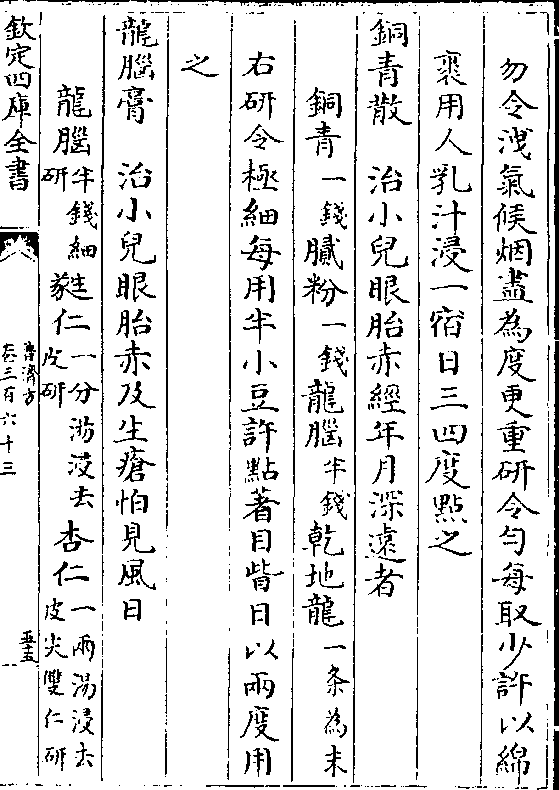 勿令洩氣候烟盡為度更重研令勻每取少許以綿
裹用人乳汁浸一宿日三四度點之
銅青散　治小兒眼胎赤經年月深遠者
銅青一錢膩粉一錢龍腦半錢乾地龍一条為末
右研令極細每用半小豆許點著目眥日以兩度用
之
龍腦膏　治小兒眼胎赤及生瘡怕見風日
龍腦半錢細研蕤仁一分湯浸去皮研杏仁一兩湯浸去皮尖雙仁研
欽定四庫全書
普濟方
卷三百六十三